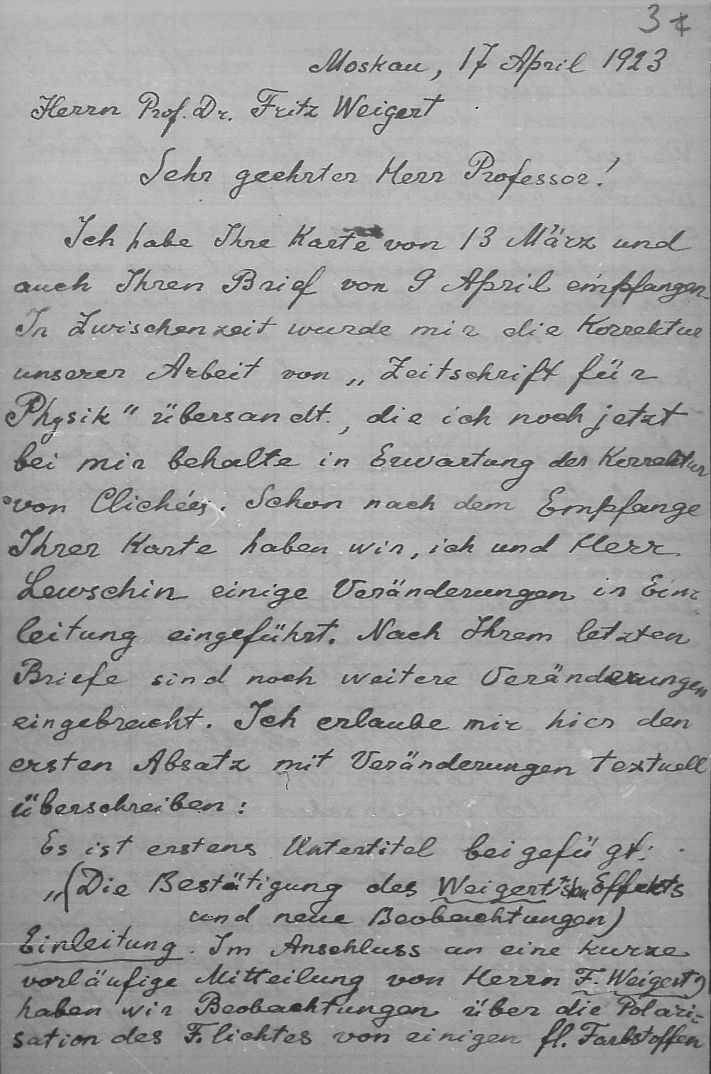 34
Moskau, 17 April 1923
Herrn Prof. Dr. Fritz Weigert
Sehr geehrter Herr Professor!
Ich habe Ihre Karte von 13 März und
auch Ihren Brief von 9 April empfangen.
In Zwischenzeit wurde mir die Korrektur
unserer Arbeit von „Zeitschrift für
Physik“ übersandt, die ich noch jetzt
bei mir behalte in Erwartung der Korrektur
von Clichées. Schon nach dem Empfange
Ihrer Karte haben wir, ich und Herr
Lewschin einige Veränderungen in Ein-
leitung eingeführt. Nach Ihrem letzten
Briefe sind noch weitere Veränderungen
eingebracht. Ich erlaube mir hier den
ersten Absatz mit Veränderungen textuell
überschreiben:
Es ist erstens Untertitel beigefügt:
„(Die Bestätigung des Weigert'schen Effekts
und neue Beobachtungen)
Einleitung. Im Anschluss an eine kurze
vorläufige Mitteilung von Herrn F. Weigert
haben wir Beobachtungen über die Polari-
sation des F. lichtes von einigen fl. Farbstoffen